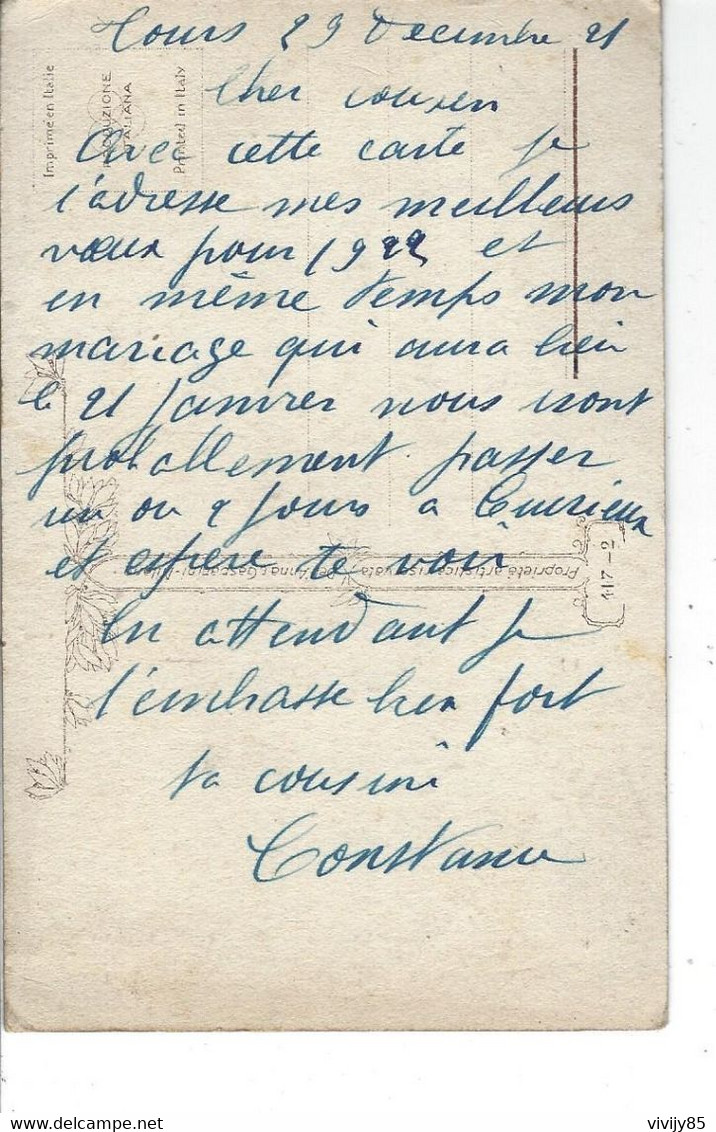 Tours 29 Decembre 21
Cher cousin
Avec cette carte je
t'adresse mes meilleurs
vœux pour 1922 et
en même temps mon
mariage qui aura lieu
le 21 Janvier nous iront
proballement passer
un ou 2 jours à Cuirieux
et espere te voir
En attendant je
t'embrasse bien fort
ta cousine
Constance
Imprimé en Italie
PRODUZIONE
ITALIANA
Printed in Italy
Proprietà artistica riservata
Gasparini
117-2
www.vivijy85